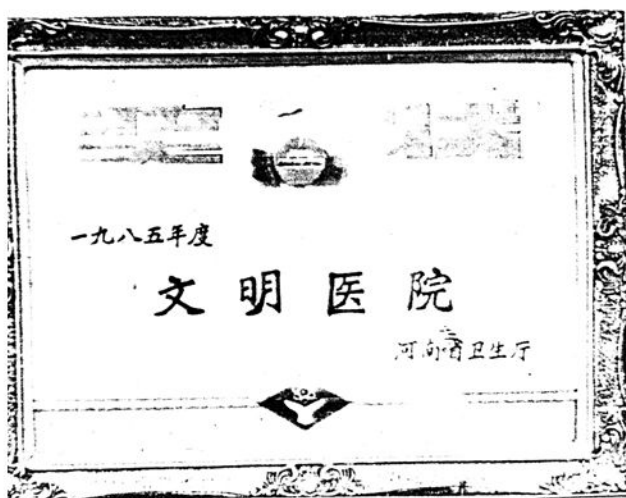 一九八五年度
文明医院
河南省卫生厅